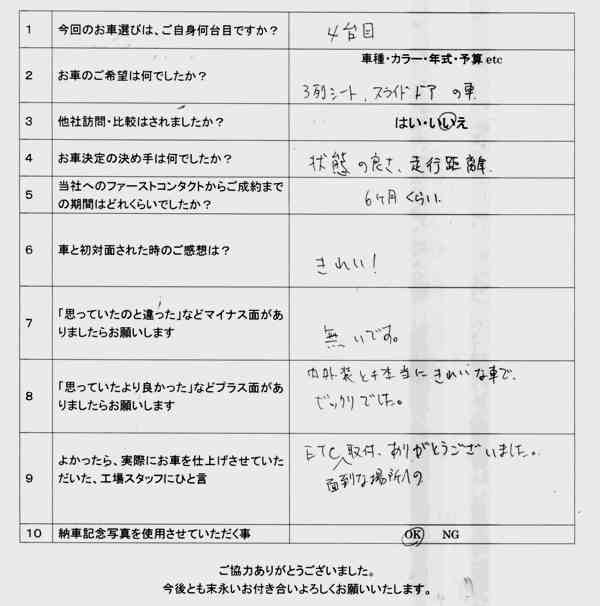 1 今回のお車選びは、ご自身何台目ですか？ 4台目
車種・カラー・年式・予算 etc
2 お車のご希望は何でしたか？ 3列シート、スライドドア の車
3 他社訪問・比較はされましたか？ はい・いいえ
4 お車決定の決め手は何でしたか？ 状態の良さ、走行距離
5 当社へのファーストコンタクトからご成約まで
の期間はどれくらいでしたか？ 6ヶ月くらい
6 車と初対面された時のご感想は？ きれい！
7 「思っていたのと違った」などマイナス面があ
りましたらお願いします 無いです。
8 「思っていたより良かった」などプラス面があ
りましたらお願いします
内外装とも本当にきれいな車で、
びっくりでした。
9 よかったら、実際にお車を仕上げさせていた
だいた、工場スタッフにひと言
ETC取付、ありがとうございました。
面倒な場所への
10 納車記念写真を使用させていただく事 OK NG
ご協力ありがとうございました。
今後とも末永いお付き合いよろしくお願いいたします。